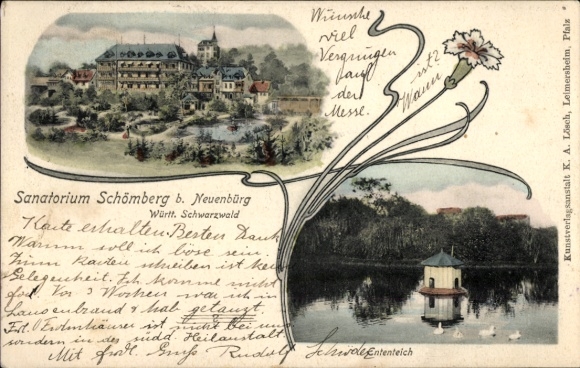 Wünsche
viel
Vergnügen
auf
der
Messe.
Wann
ist?
Kunstverlagsanstalt K. A. Lösch, Leimersheim, Pfalz
Sanatorium Schömberg b. Neuenbürg
Württ. Schwarzwald
Karte erhalten. Besten Dank
Warum soll ich böse sein.
Zum Karten schreiben ist kein
Gelegenheit. Ich komme nicht
fort. Vor 3 Wochen war ich in
& hab getanzt.
ist nicht bei uns
sondern in der südd. Heilanstalt
Mit frdl. Gruß Rudolf
Ententeich